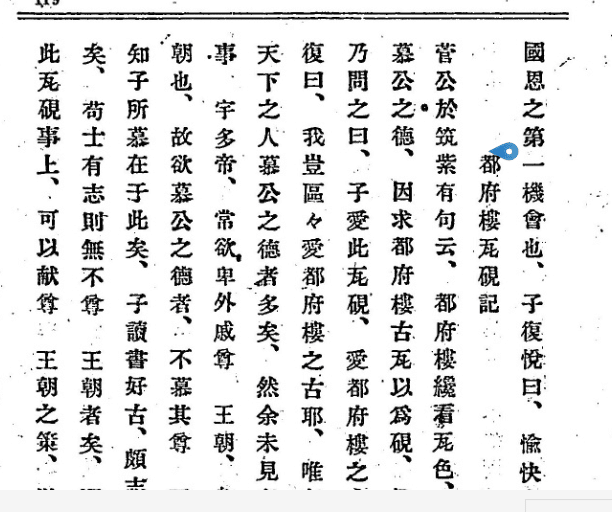 國恩之第一機會也、子復悅曰、愉快
都府樓瓦硯記
菅公於筑紫有句云、都府樓纔看瓦色、
慕公之德、因求都府樓古瓦以爲硯、
乃問之曰、子愛此瓦硯、愛都府樓之
復曰、我豈區々愛都府樓之古耶、唯
天下之人慕公之德者多矣、然余未見
事 宇多帝、常欲卑外戚尊 王朝、
朝也、故欲慕公之德者、不慕其尊
知子所慕在于此矣、子讀書好古、頗志
矣、苟士有志則無不尊 王朝者矣、
此瓦硯事上、可以献尊 王朝之策、